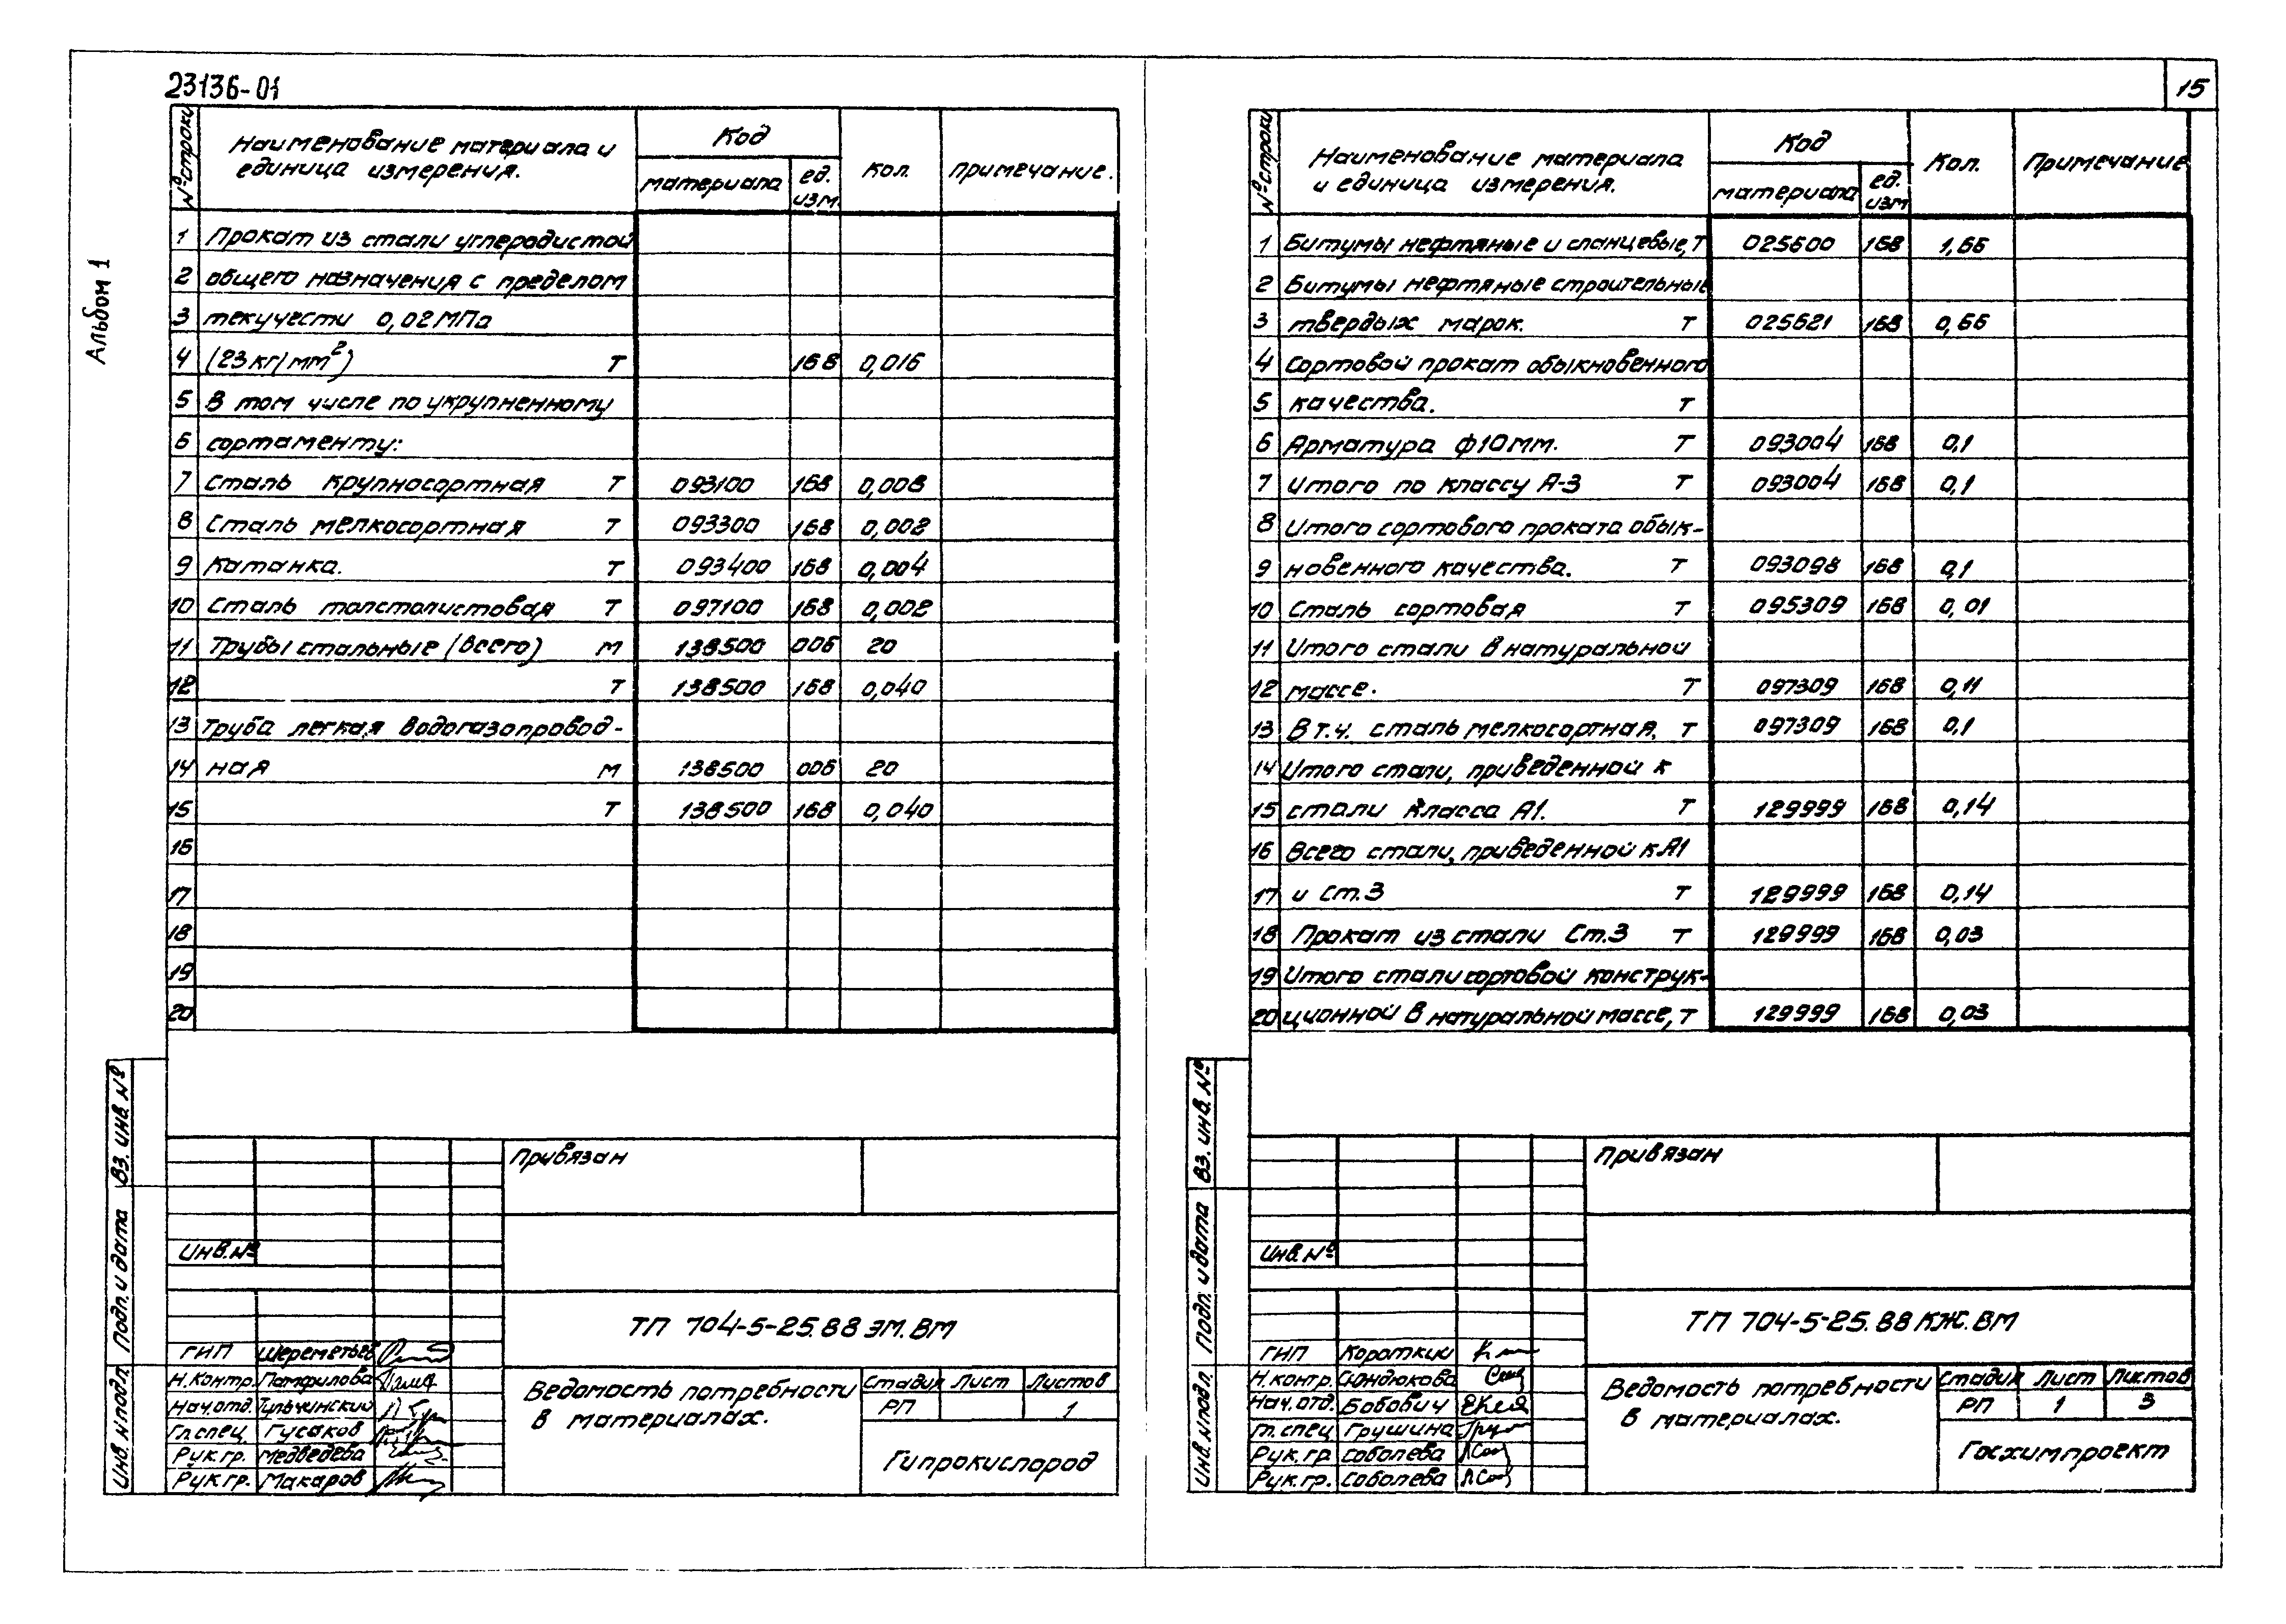 23136-01
15
Альбом 1
№ строки | Наименование материала и единица измерения. | Код материала | ед. изм | Кол. | Примечание.
1 Прокат из стали углеродистой
2 общего назначения с пределом
3 текучести 0,02МПа
4 (23кг/мм²) Т 168 0,016
5 В том числе по укрупненному
6 сортаменту:
7 Сталь крупносортная Т 093100 168 0,008
8 Сталь мелкосортная Т 093300 168 0,002
9 Катанка. Т 093400 168 0,004
10 Сталь толстолистовая Т 097100 168 0,002
11 Трубы стальные (всего) М 138500 006 20
12 Т 138500 168 0,040
13 Труба легкая водогазопровод-
14 ная М 138500 006 20
15 Т 138500 168 0,040
16
17
18
19
20
Привязан
Инв.№
ТП 704-5-25.88 ЭМ.ВМ
ГИП Шереметьев
Н.контр. Памфилова
Нач.отд. Тульчинский
Гл.спец. Гусаков
Рук.гр. Медведева
Рук.гр. Макаров
Ведомость потребности
в материалах.
Стадия Лист Листов
РП 1
Гипрокислород
Инв.№подл. Подп. и дата Вз. инв. №
№ строки | Наименование материала и единица измерения. | Код материала | ед. изм | Кол. | Примечание
1 Битумы нефтяные и сланцевые, Т 025600 168 1,66
2 Битумы нефтяные строительные
3 твердых марок. Т 025621 168 0,66
4 Сортовой прокат обыкновенного
5 качества. Т
6 Арматура ф10мм. Т 093004 168 0,1
7 Итого по классу А-3 Т 093004 168 0,1
8 Итого сортового проката обык-
9 новенного качества. Т 093098 168 0,1
10 Сталь сортовая Т 095309 168 0,01
11 Итого стали в натуральной
12 массе. Т 097309 168 0,11
13 В т.ч. сталь мелкосортная, Т 097309 168 0,1
14 Итого стали, приведенной к
15 стали класса А1. Т 129999 168 0,14
16 Всего стали, приведенной к А1
17 и Ст.3 Т 129999 168 0,14
18 Прокат из стали Ст.3 Т 129999 168 0,03
19 Итого стали сортовой конструк-
20 ционной в натуральной массе, Т 129999 168 0,03
Привязан
Инв.№
ТП 704-5-25.88 КЖ.ВМ
ГИП Короткий
Н.контр. Сюндюкова
Нач.отд. Бобович
Гл.спец Грушина
Рук.гр. Соболева
Рук.гр. Соболева
Ведомость потребности
в материалах.
Стадия Лист Листов
РП 1 3
Госхимпроект
Инв.№подл. Подп. и дата Вз. инв. №